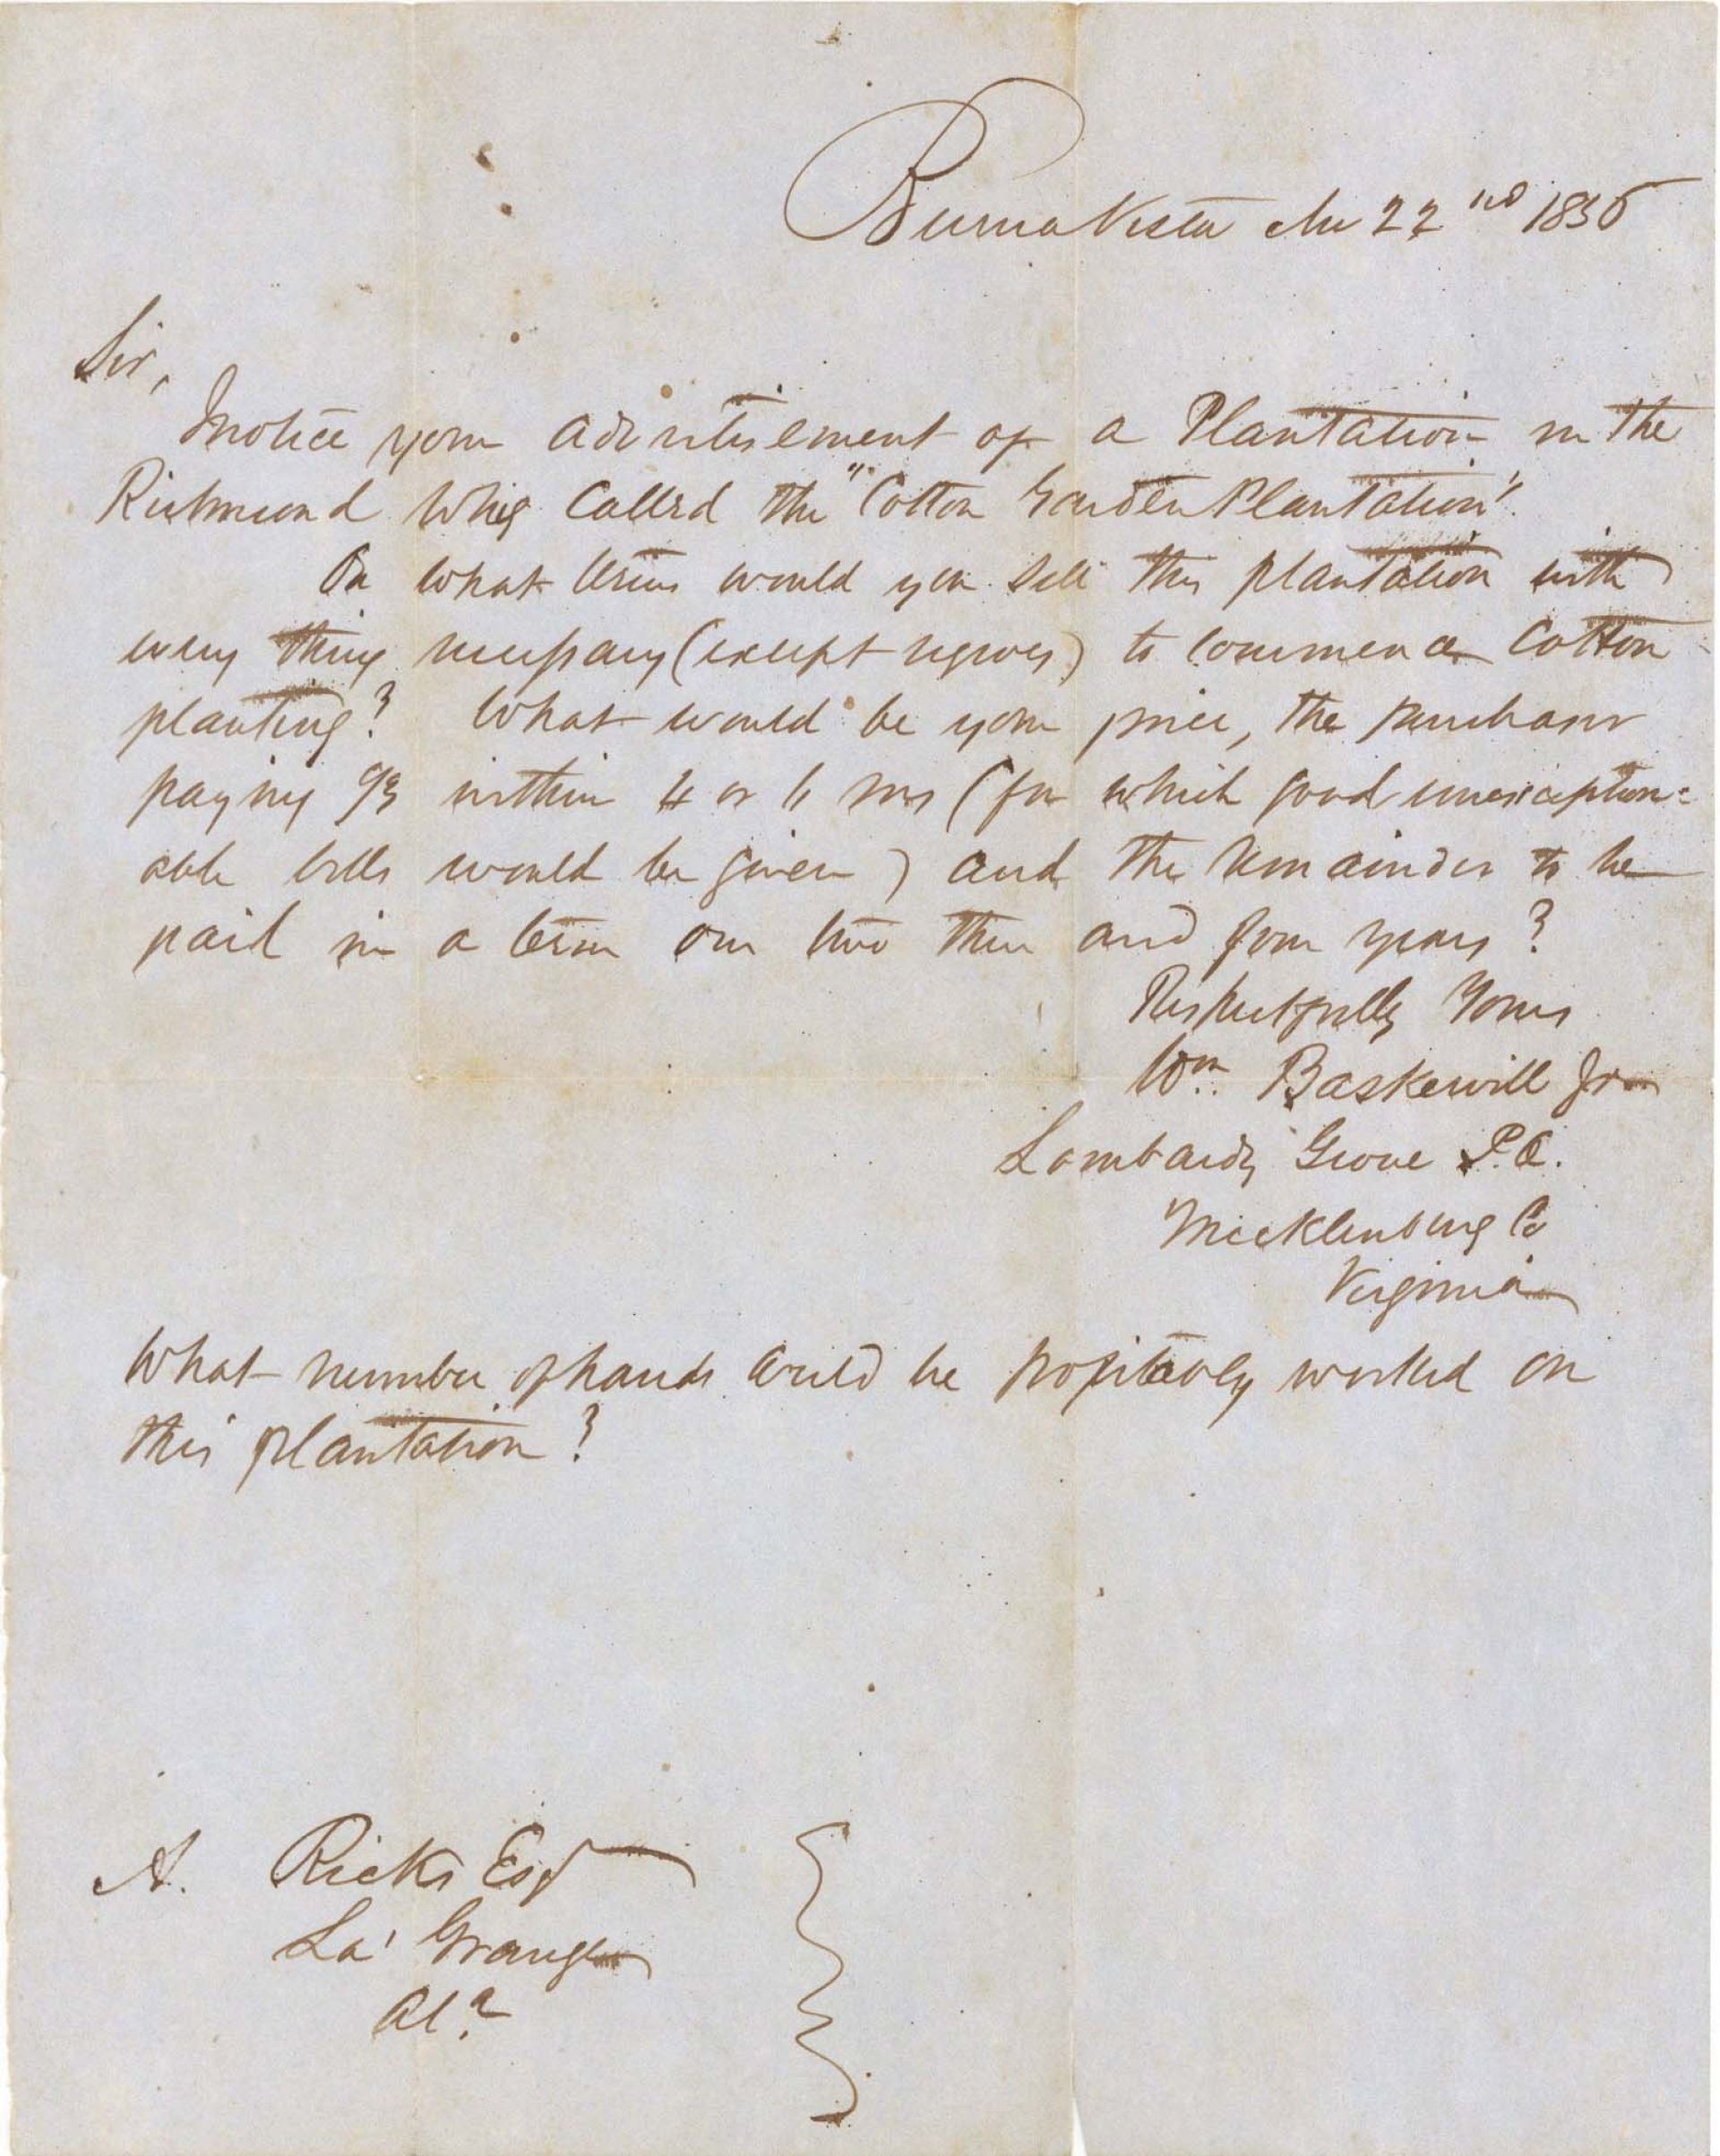 Buena Vista 22nd 1856
Sir,
I notice your advertisement of a Plantation in the
Richmond Whig Called the "Cotton Garden Plantation".
On what terms would you sell this plantation with
every thing necessary (except negroes) to commence Cotton
planting? What would be your price, the purchaser
paying 1/3 within 4 or 6 ms (for which good unexception=
able bills would be given) and the remainder to be
paid in a term one two three and four years?
Respectfully Yours
Wm. Baskervill Jr
Lombardy Grove P.O.
Mecklenburg Co
Virginia
What number of hands could be profitably worked on
this plantation?
A. Ricks Esq
La' Grange
Ala